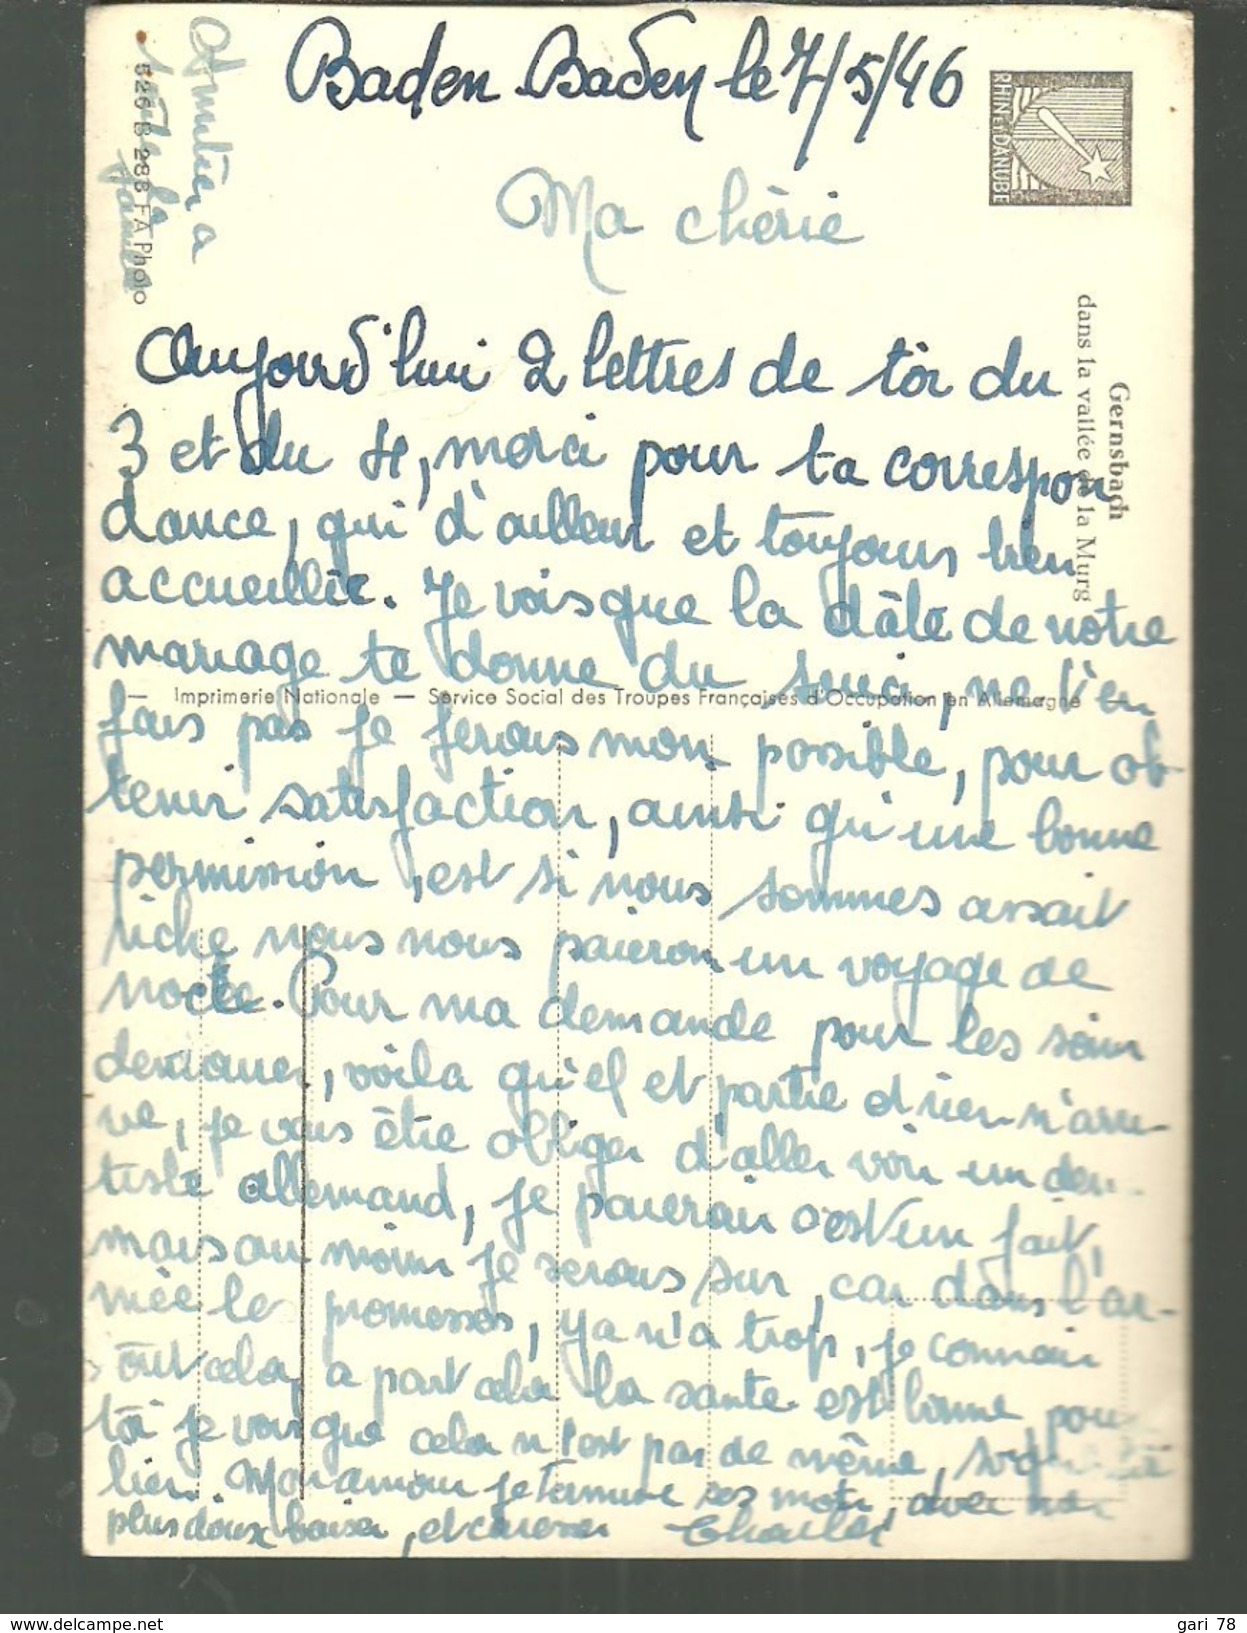 Baden Baden le 7/5/46
Ma chèrie
Aujourd'hui 2 lettres de toi du
3 et du 4, merci pour ta correspon
dance, qui d'ailleur et toujours bien
accueillie. Je vois que la dâte de notre
mariage te donne du souci, ne t'en
fais pas je ferais mon possible, pour ob-
tenir satisfaction, ainsi qu'une bonne
permission, est si nous sommes assait
riche nous nous paieron un voyage de
noce. Pour ma demande pour les soin
dentaire, voila qu'el et partie et rien n'arri-
ve, je vais être obliger d'aller voir un den-
tiste allemand, je paierai c'est un fait,
mais au moin je serais sur, car dans l'ar-
mée le promesses, y a n'a trop, je connai
tout cela, a part cela la sante est bonne, pour
toi je vois que cela n'est pas de même, soigne toi
bien. Mon amour je termine ses mots, avec mes
plus doux baiser, et caresses Charles
Amitiés a
toute la
famille
526 B 288 FA Photo
RHIN ET DANUBE
Gernsbach
dans la vallée de la Murg
— Imprimerie Nationale — Service Social des Troupes Françaises d'Occupation en Allemagne
gari 78